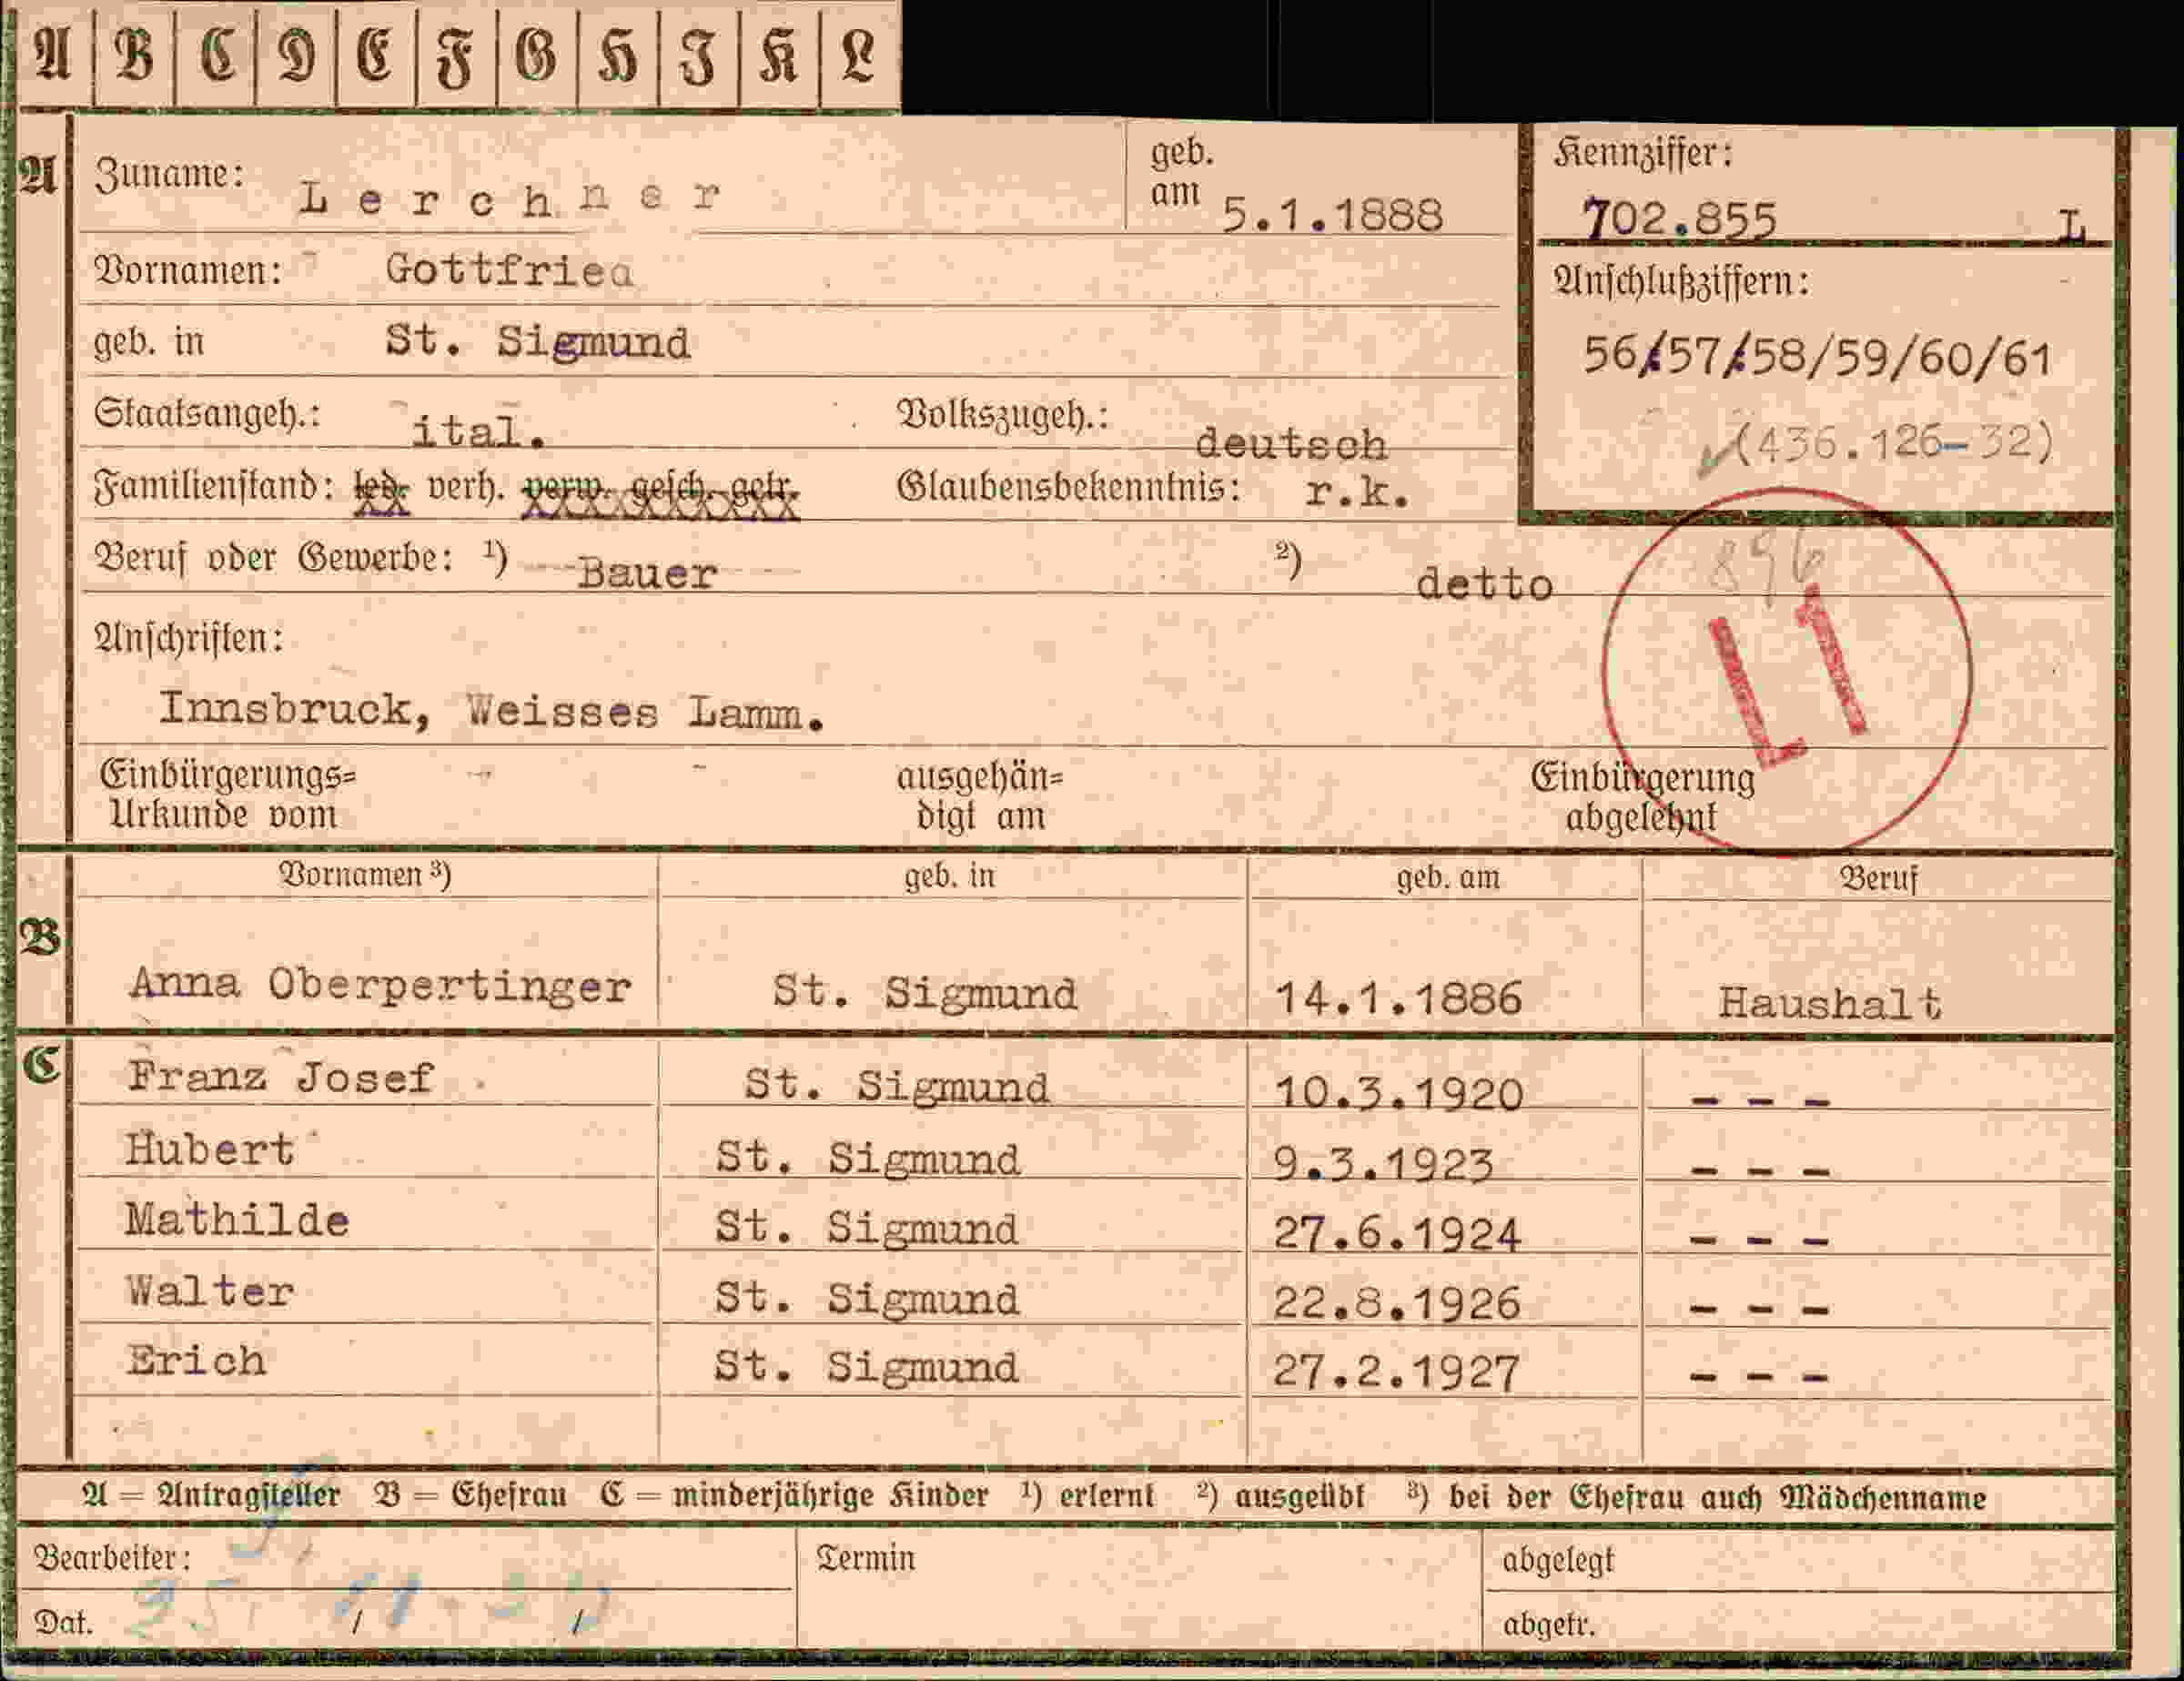 A B C D E F G H I K L
A Zuname: Lerchner geb. am 5.1.1888
Kennziffer: 702.855 L
Vornamen: Gottfried
Anschlußziffern:
geb. in St. Sigmund
56/57/58/59/60/61
Staatsangeh.: ital. Volkszugeh.: deutsch
(436.126-32)
Familienstand: led. verh. verw. gesch. getr. Glaubensbekenntnis: r.k.
896
Beruf oder Gewerbe: ¹) Bauer ²) detto
L1
Anschriften:
Innsbruck, Weisses Lamm.
Einbürgerungs= ausgehän= Einbürgerung
Urkunde vom digt am abgelehnt
Vornamen ³) geb. in geb. am Beruf
B
Anna Oberpertinger St. Sigmund 14.1.1886 Haushalt
C Franz Josef St. Sigmund 10.3.1920 - - -
Hubert St. Sigmund 9.3.1923 - - -
Mathilde St. Sigmund 27.6.1924 - - -
Walter St. Sigmund 22.8.1926 - - -
Erich St. Sigmund 27.2.1927 - - -
A = Antragsteller B = Ehefrau C = minderjährige Kinder ¹) erlernt ²) ausgeübt ³) bei der Ehefrau auch Mädchenname
Bearbeiter: Termin abgelegt
Dat. / / abgetr.